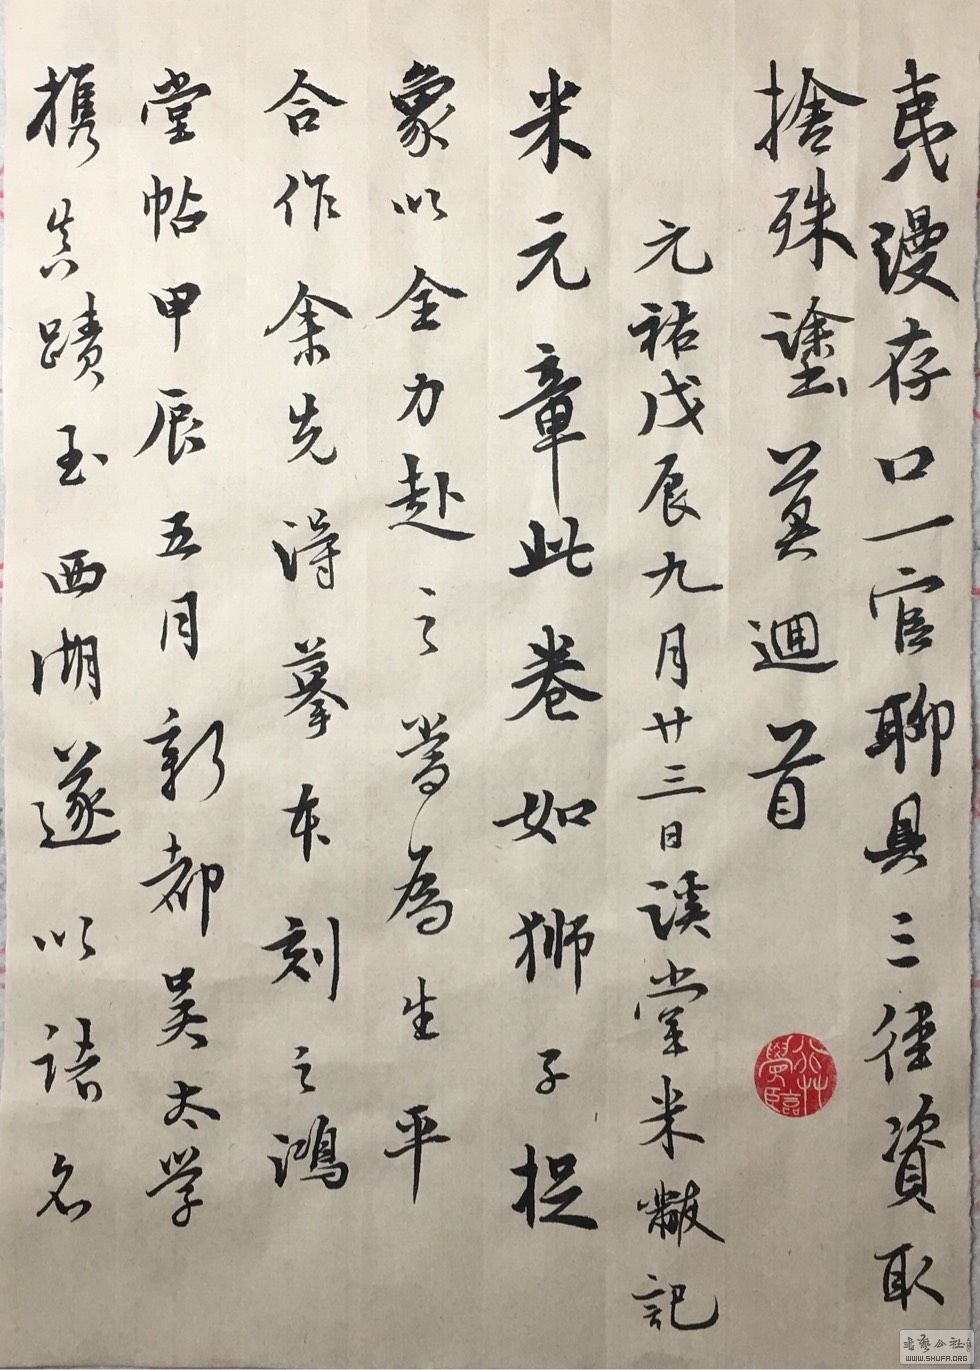 夷漫存口一官聊具三径資取
捨殊塗莫迴首
元祐戊辰九月廿三日溪堂米黻記
米元章此卷如狮子捉
象以全力赴之當為生平
合作余先得摹本刻之鴻
堂帖甲辰五月新都吴太学
携真蹟至西湖遂以諸名
WWW.SHUFA.ORG